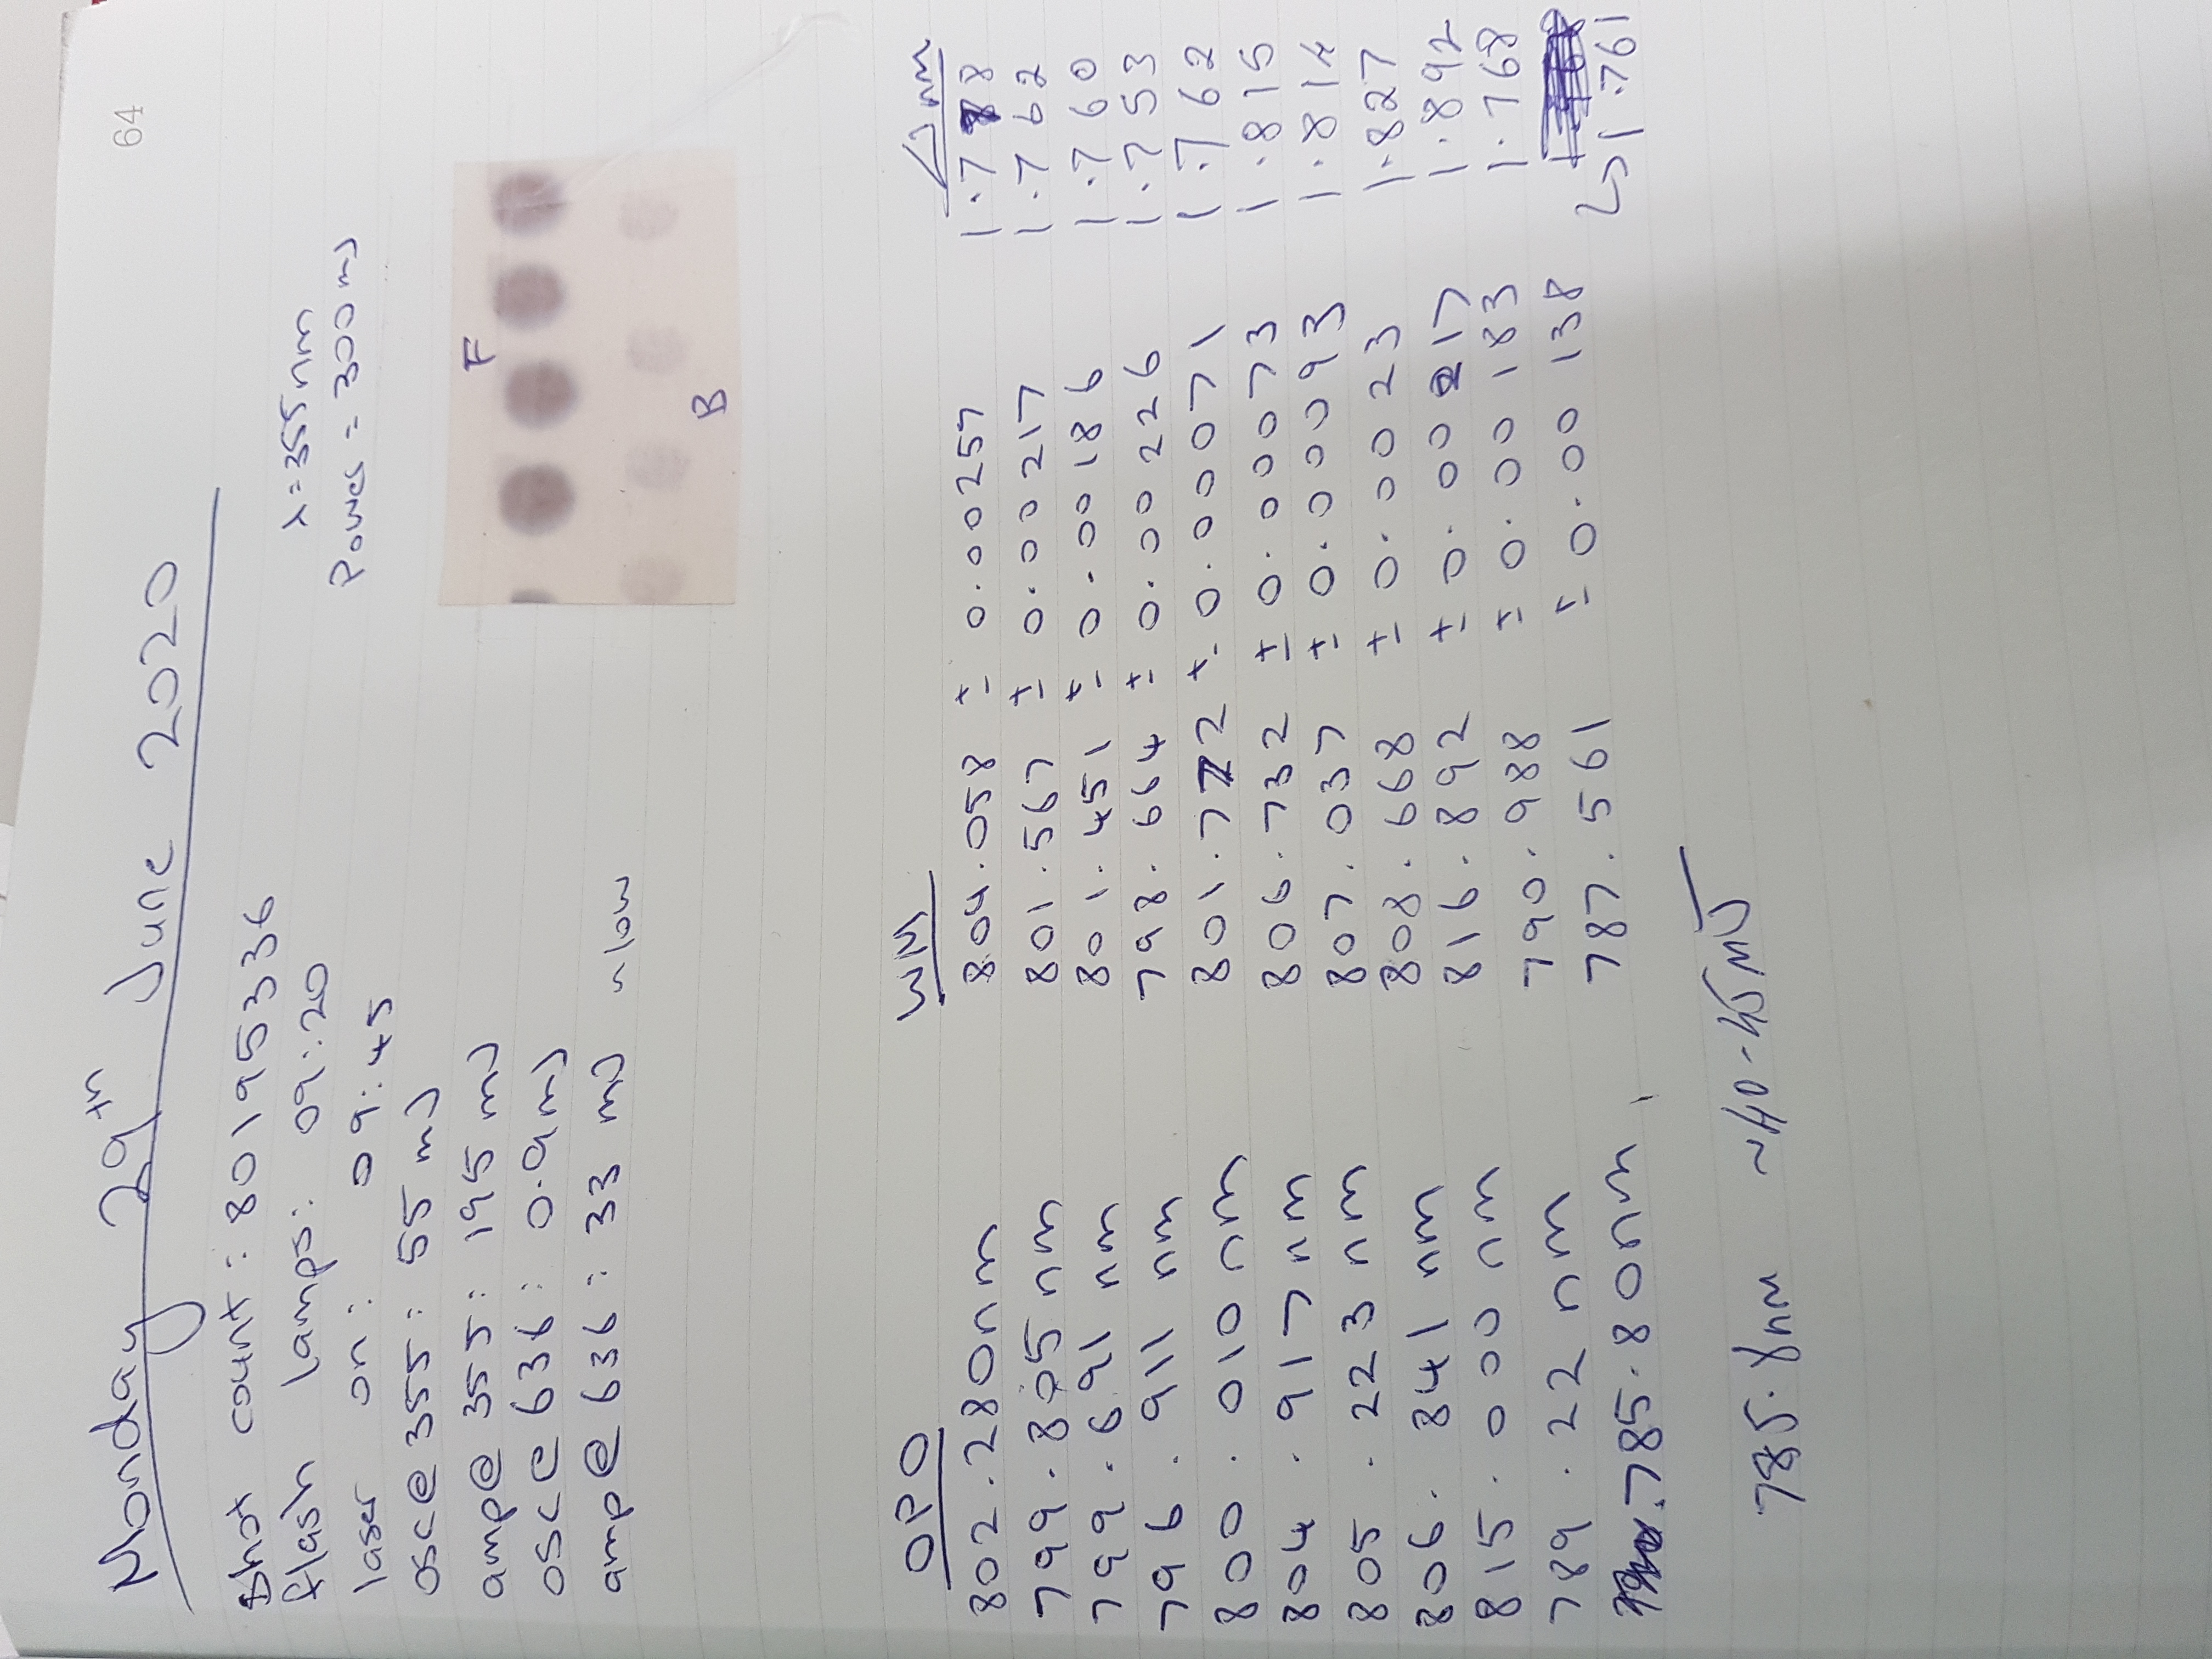 Monday 29th June 2020
64
Shot count: 80195336
flash lamps: 09:20
laser on: 09:45
osc@ 355: 55 mJ
amp@ 355: 195 mJ
osc@ 636: 0.9mJ
amp@ 636: 33 mJ
λ=355nm
Power = 300mJ
F
B
OPO WM Δnm
802.280nm 804.058 ± 0.00257 1.778
799.805nm 801.567 ± 0.00217 1.762
799.691 nm 801.451 ± 0.00186 1.760
796.911 nm 798.664 ± 0.00226 1.753
800.010 nm 801.772 ± 0.00071 1.762
804.917nm 806.732 ± 0.00073 1.815
805.223 nm 807.037 ± 0.00093 1.814
806.841 nm 808.668 ± 0.0023 1.827
815.000 nm 816.892 ± 0.00217 1.892
789.22 nm 790.988 ± 0.00183 1.768
785.80nm 787.561 ± 0.00138 1.761
785.8nm ~40-45mJ